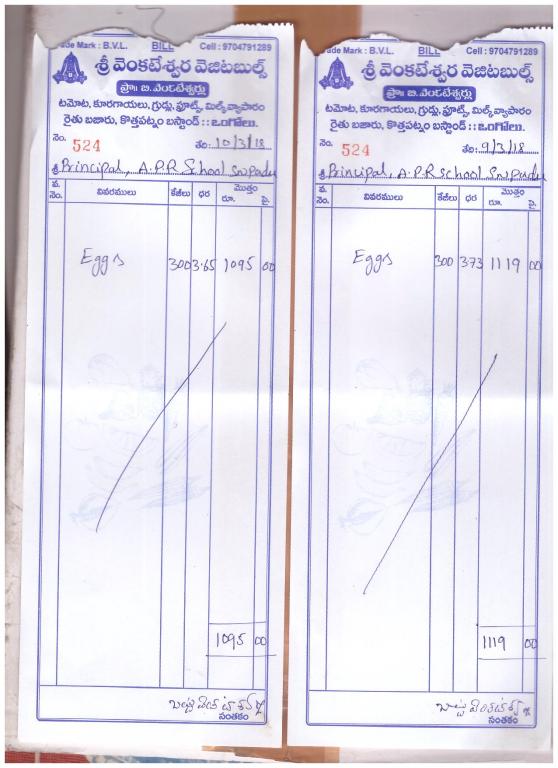 Trade Mark : B.V.L. BILL Cell : 9704791289
శ్రీ వెంకటేశ్వర వెజిటబుల్స్
ప్రొః బి.వెంకటేశ్వర్లు
టమోట, కూరగాయలు, గ్రుడ్లు, ఫ్రూట్స్, మిల్క్ వ్యాపారం
రైతు బజారు, కొత్తపట్నం బస్టాండ్ :: ఒంగోలు.
నెం. 524 తేది: 10/3/18
శ్రీ Principal, A.P.R School S.N.Padu
వ.నెం. వివరములు కేజీలు ధర మొత్తం రూ. పై.
Eggs 300 3.65 1095 00
1095 00
సంతకం
ade Mark : B.V.L. BILL Cell : 9704791289
శ్రీ వెంకటేశ్వర వెజిటబుల్స్
ప్రొః బి.వెంకటేశ్వర్లు
టమోట, కూరగాయలు, గ్రుడ్లు, ఫ్రూట్స్, మిల్క్ వ్యాపారం
రైతు బజారు, కొత్తపట్నం బస్టాండ్ :: ఒంగోలు.
నెం. 524 తేది: 9/3/18
శ్రీ Principal, A.P.R School S.N.Padu
వ.నెం. వివరములు కేజీలు ధర మొత్తం రూ. పై.
Eggs 300 373 1119 00
1119 00
సంతకం